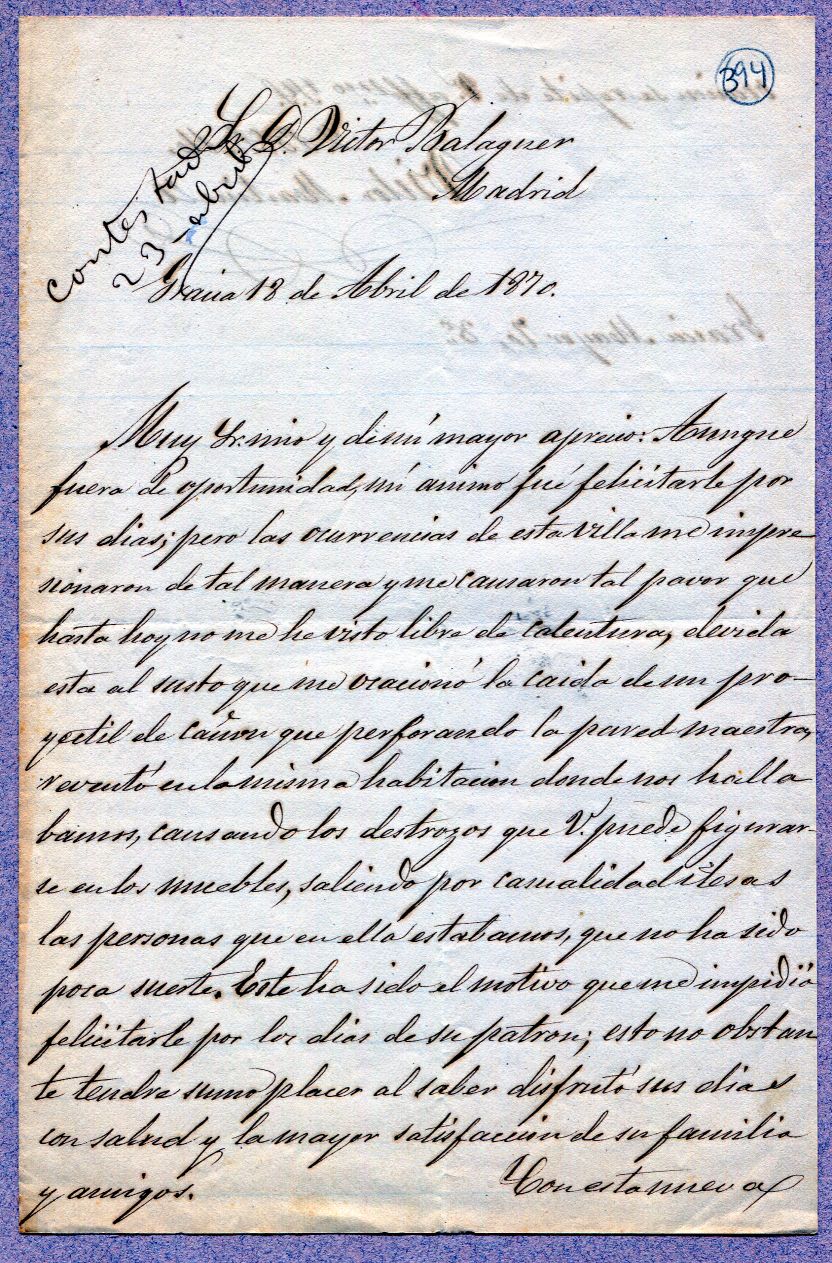 394
Sr. D. Victor Balaguer
Madrid
contestada
23 abril
Gracia 18 de Abril de 1870.
Muy Sr. mio y de mi mayor aprecio: Aunque
fuera de oportunidad, mi animo fué felicitarle por
sus dias; pero las ocurrencias de esta villa me impre
sionaron de tal manera y me causaron tal pavor que
hasta hoy no me he visto libre de calentura, devida
esta al susto que me ocacionó la caida de un pro-
yectil de cañon que perforando la pared maestra,
reventó en la misma habitacion donde nos halla
bamos, causando los destrozos que V. puede figurar-
se en los muebles, saliendo por casualidad ilesas
las personas que en ella estabamos, que no ha sido
poca suerte. Este ha sido el motivo que me impidió
felicitarle por los dias de su patron; esto no obstan
te tendre sumo placer al saber disfrutó sus dias
con salud y la mayor satisfaccion de su familia
y amigos. Con esta nueva